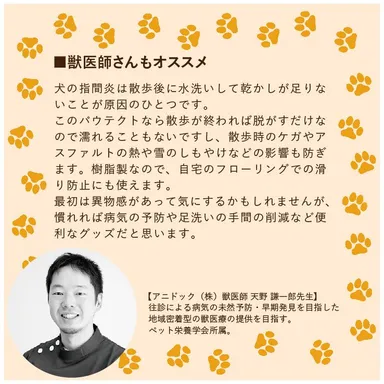 ■獣医師さんもオススメ
犬の指間炎は散歩後に水洗いして乾かしが足りな
いことが原因のひとつです。
このパウテクトなら散歩が終われば脱がすだけな
ので濡れることもないですし、散歩時のケガやア
スファルトの熱や雪のしもやけなどの影響も防ぎ
ます。樹脂製なので、自宅のフローリングでの滑
り防止にも使えます。
最初は異物感があって気にするかもしれませんが、
慣れれば病気の予防や足洗いの手間の削減など便
利なグッズだと思います。
【アニドック（株）獣医師 天野 謙一郎先生】
往診による病気の未然予防・早期発見を目指した
地域密着型の獣医療の提供を目指す。
ペット栄養学会所属。